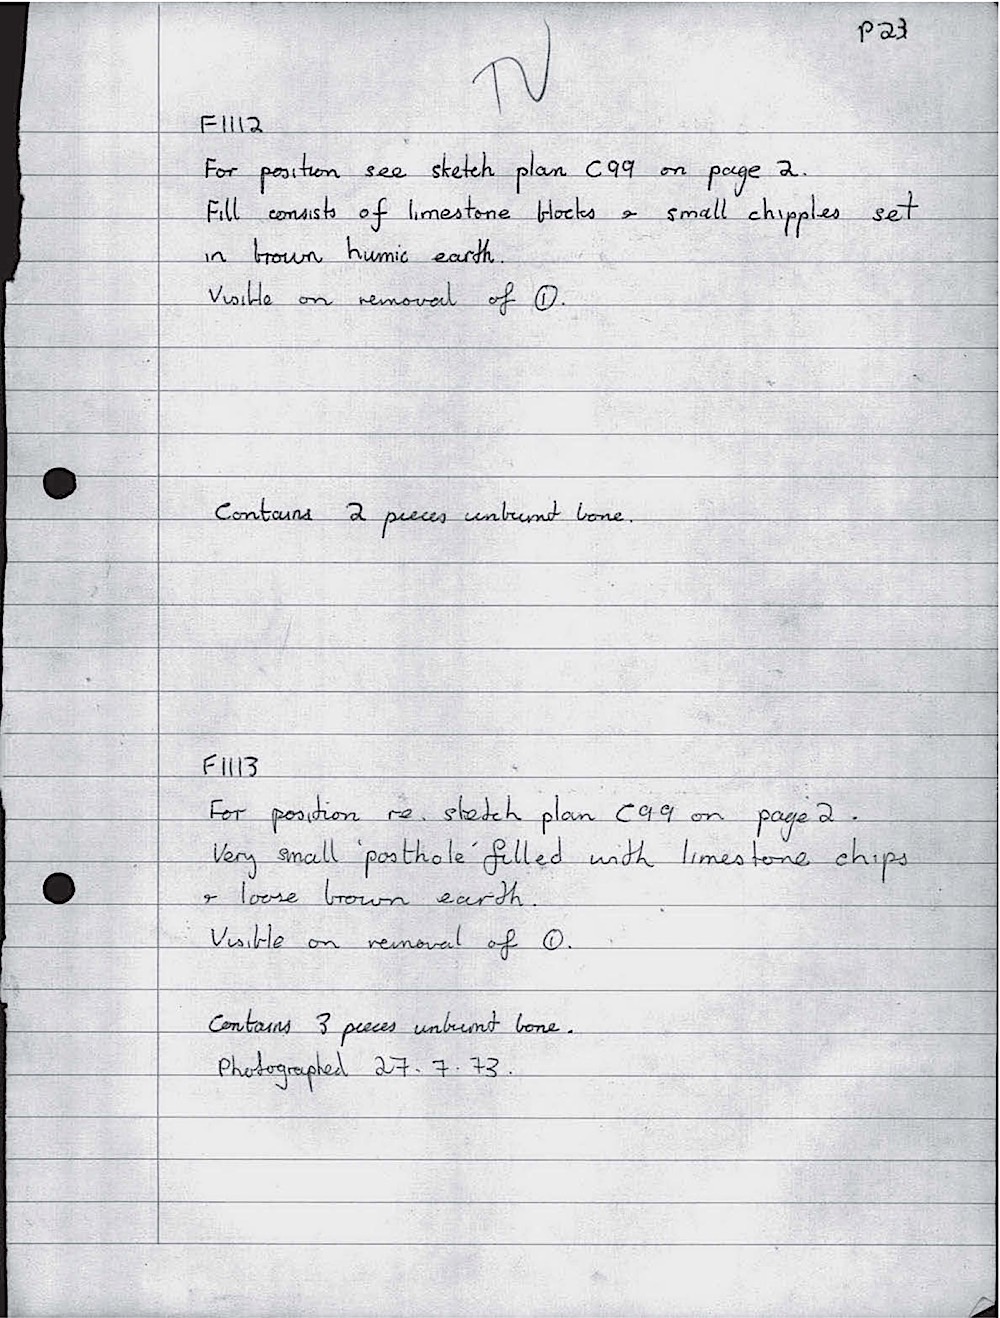 P23
F1112
For position see sketch plan C99 on page 2.
Fill consists of limestone blocks & small chipples set
in brown humic earth.
Visible on removal of ①.
Contains 2 pieces unburnt bone.
F1113
For position re. sketch plan C99 on page 2.
Very small 'posthole' filled with limestone chips
& loose brown earth.
Visible on removal of ①.
Contains 3 pieces unburnt bone.
Photographed 27.7.73.